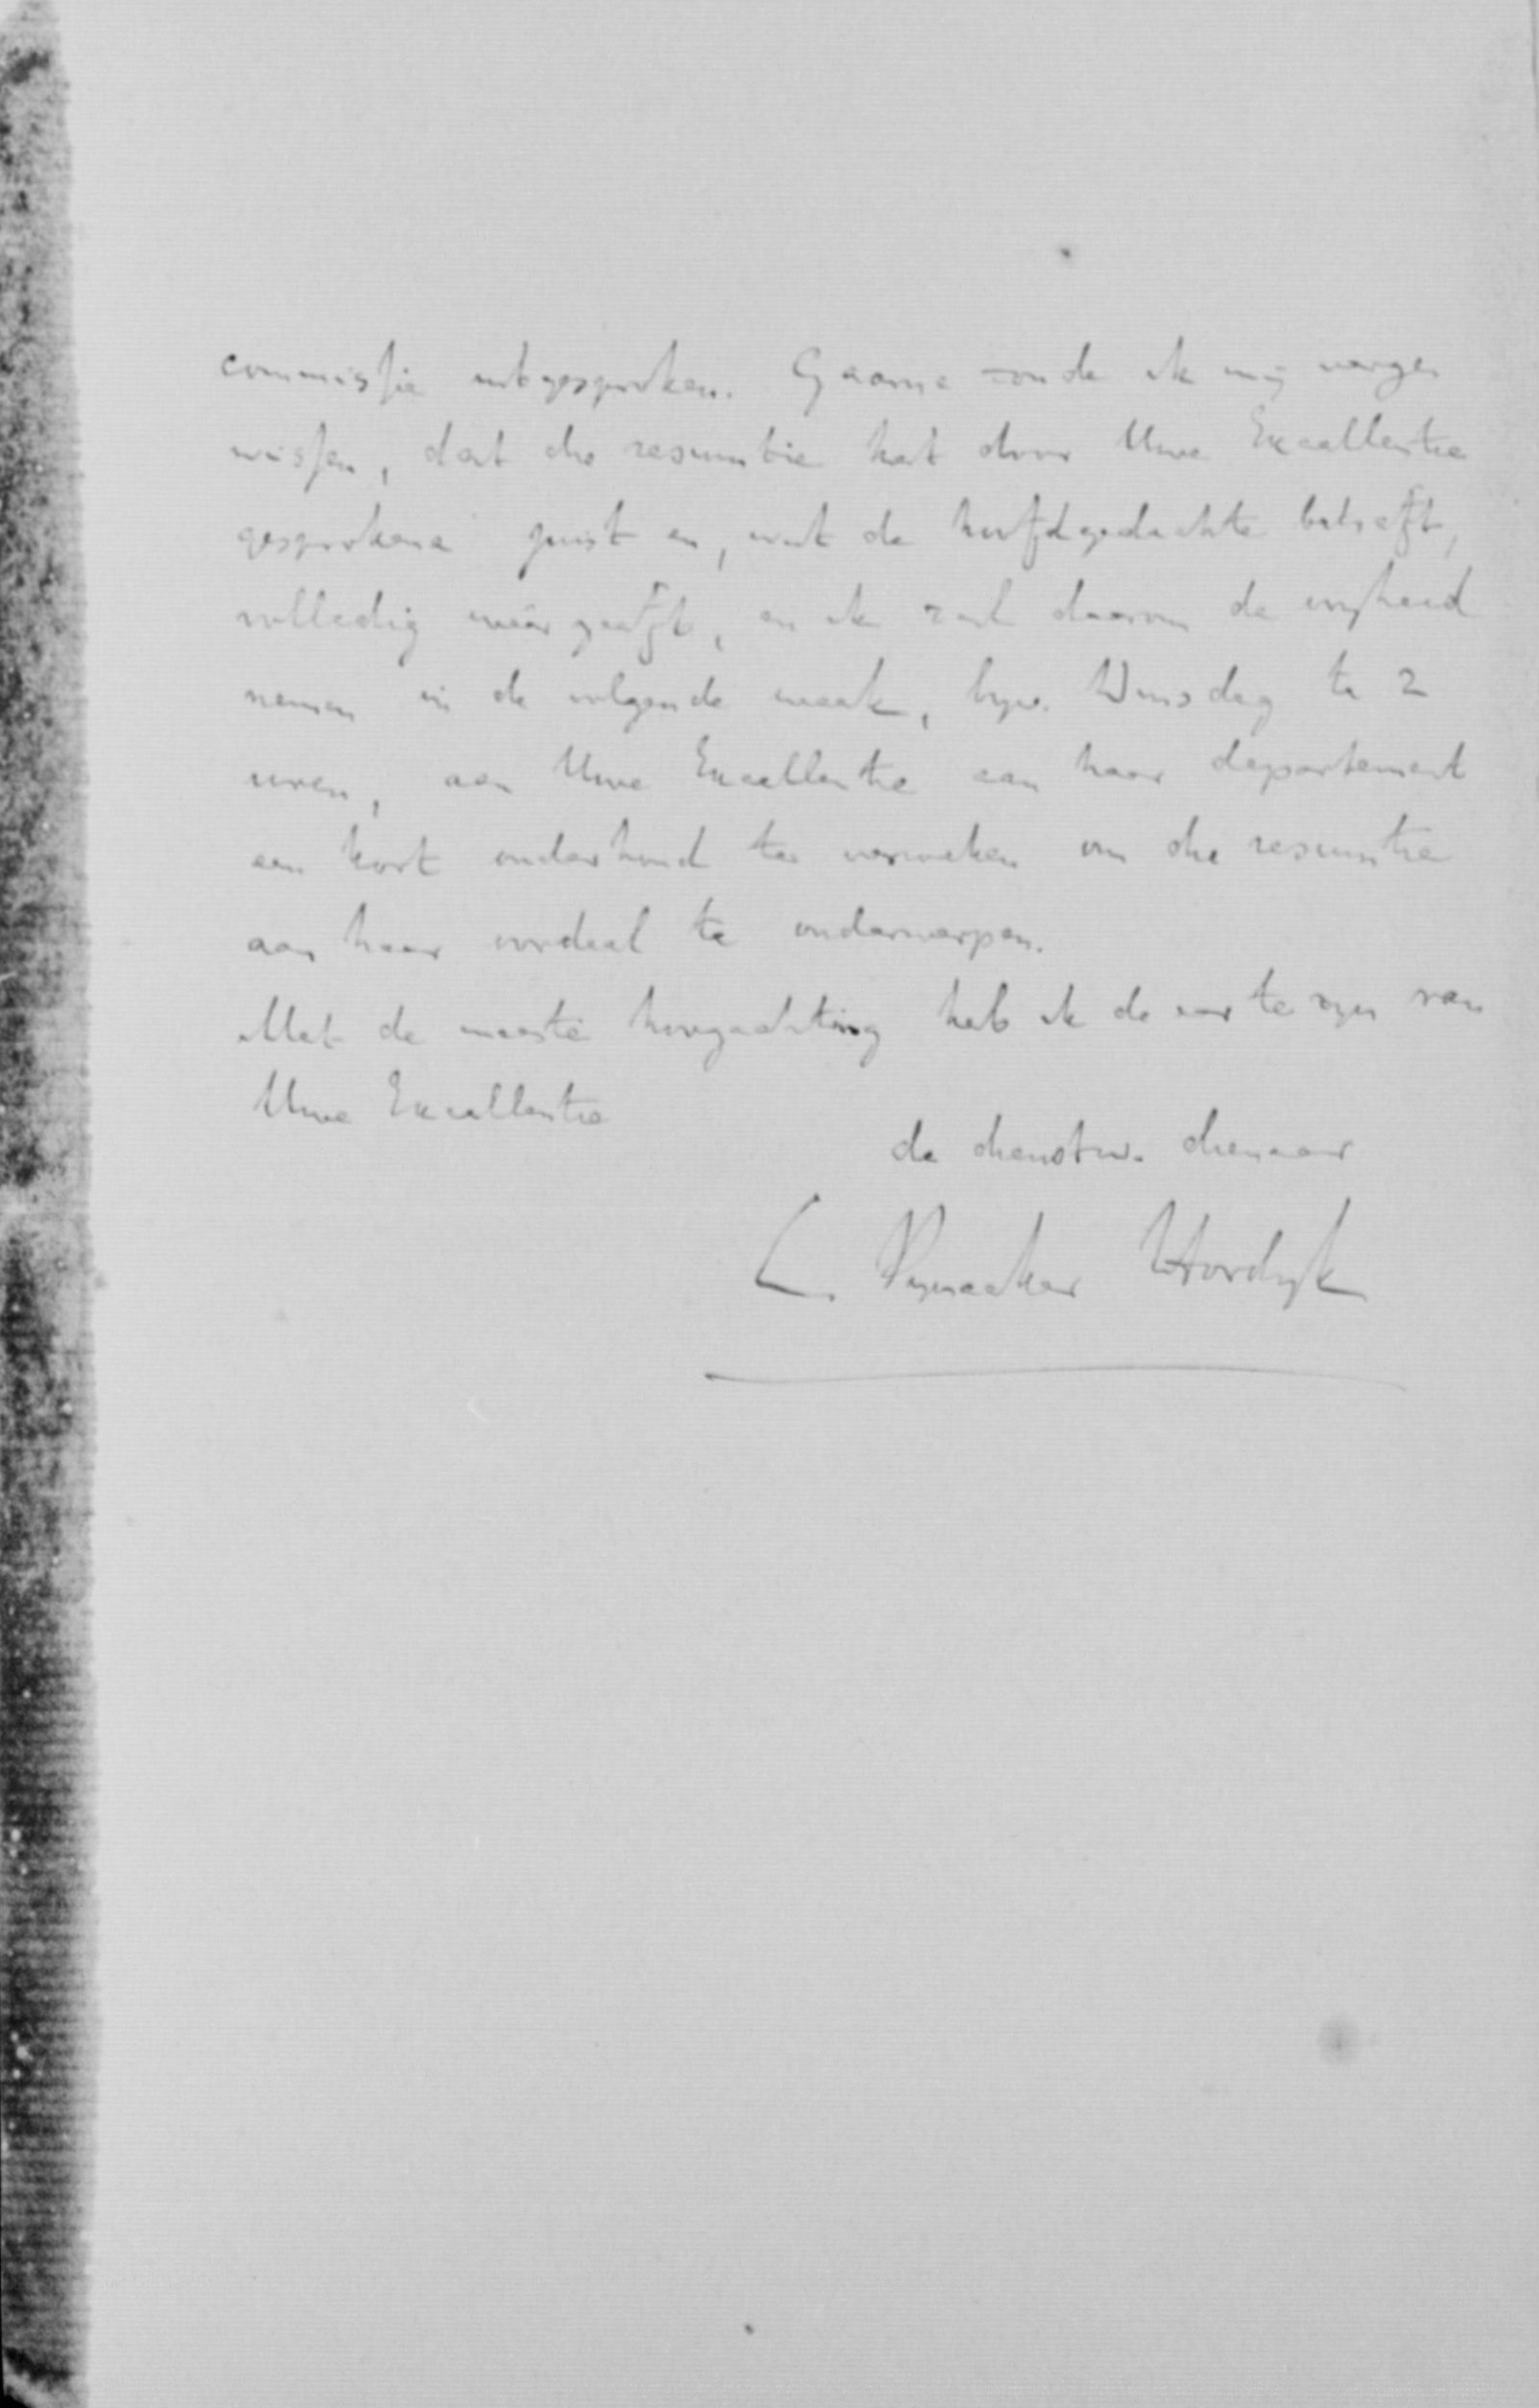 commissie uitgesproken. Gaarne zoude ik mij verge-
wissen, dat die resumtie het door Uwe Excellentie
gesprokene juist en, wat de hoofdgedachte betreft,
volledig weêrgeeft, en ik zal daarom de vrijheid
nemen in de volgende week, bijv. Dinsdag te 2
uren, aan Uwe Excellentie aan haar departement
een kort onderhoud te verzoeken om die resumtie
aan haar oordeel te onderwerpen.
Met de meeste hoogachting heb ik de eer te zijn van
Uwe Excellentie
de dienstw. dienaar
C. Pijnacker Hordijk